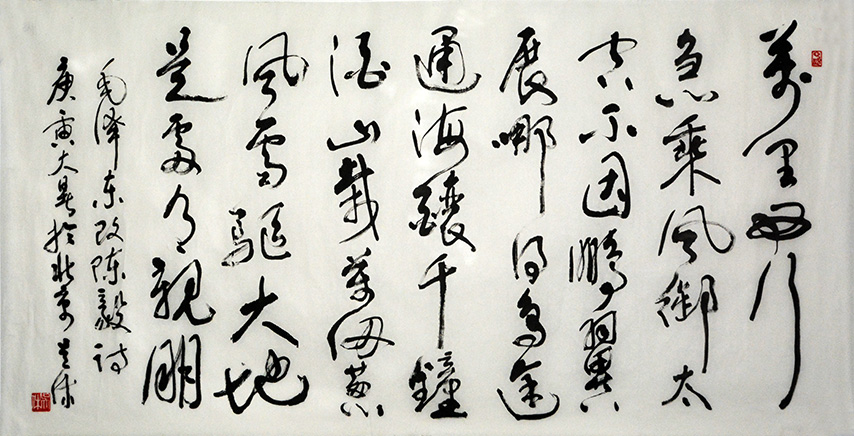 萬里西行
急乘风御太
空不因鵬翼
展哪得鸟途
通海釀千鐘
酒山栽萬仞葱
风雷驱大地
是處有親朋
毛泽东改陈毅诗
庚寅大暑於北京